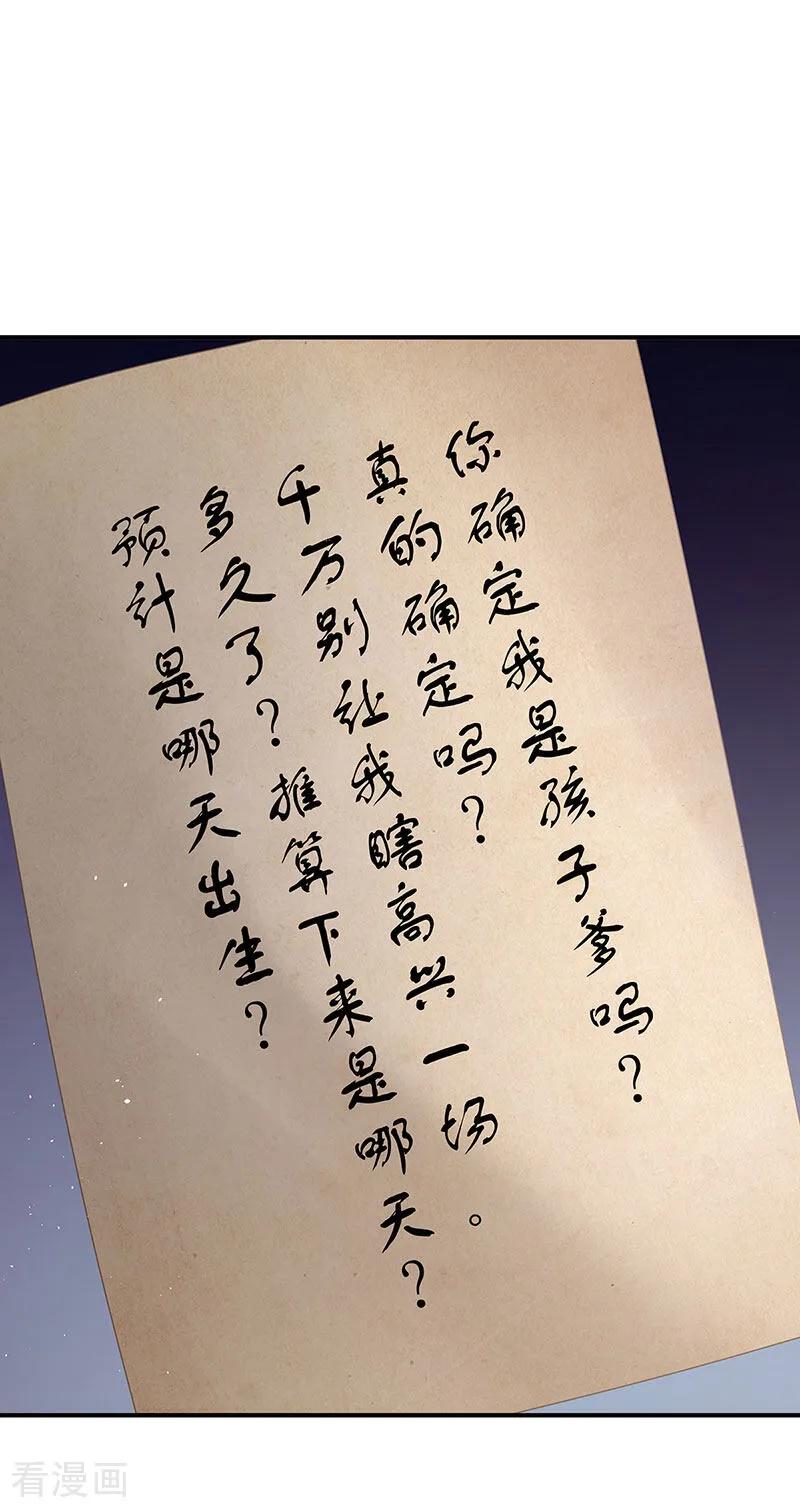 你确定我是孩子爹吗？
真的确定吗？
千万别让我瞎高兴一场。
多久了？推算下来是哪天？
预计是哪天出生？
看漫画